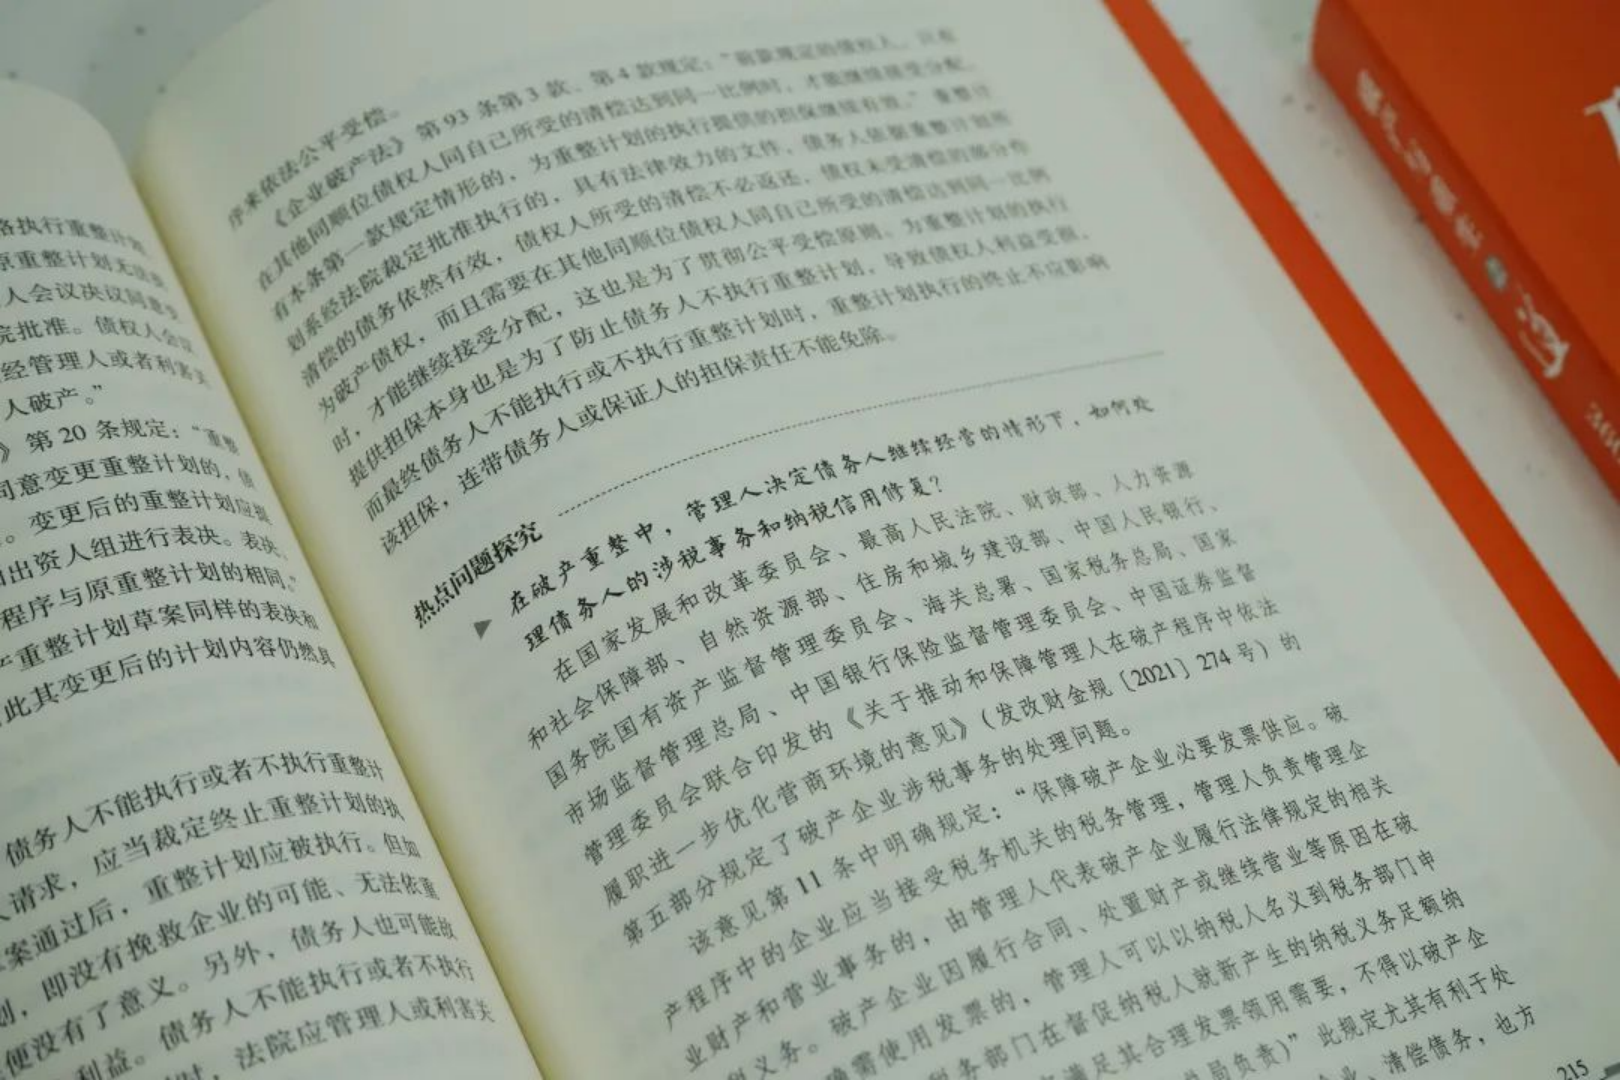 各执行重整计划
原重整计划无法
人会议决议同意变
院批准。债权人会议
经管理人或者利害关
人破产。”
》第 20 条规定：“重整
同意变更重整计划的，债
。变更后的重整计划应提
出资人组进行表决。表决、
程序与原重整计划的相同。”
重整计划草案同样的表决和
此其变更后的计划内容仍然具
债务人不能执行或者不执行重整计
人请求，应当裁定终止重整计划的执
案通过后，重整计划应被执行。但如
划，即没有挽救企业的可能、无法依重
便没有了意义。另外，债务人也可能故
利益。债务人不能执行或者不执行
时，法院应管理人或利害关
序来依法公平受偿。
《企业破产法》第 93 条第 3 款、第 4 款规定：“前款规定的债权人，只有
在其他同顺位债权人同自己所受的清偿达到同一比例时，才能继续接受分配。
有本条第一款规定情形的，为重整计划的执行提供的担保继续有效。”重整计
划系经法院裁定批准执行的，具有法律效力的文件，债务人依据重整计划所
清偿的债务依然有效，债权人所受的清偿不必返还，债权未受清偿的部分作
为破产债权，而且需要在其他同顺位债权人同自己所受的清偿达到同一比例
时，才能继续接受分配，这也是为了贯彻公平受偿原则。为重整计划的执行
提供担保本身也是为了防止债务人不执行重整计划，导致债权人利益受损，
而最终债务人不能执行或不执行重整计划时，重整计划执行的终止不应影响
该担保，连带债务人或保证人的担保责任不能免除。
热点问题探究
▶ 在破产重整中，管理人决定债务人继续经营的情形下，如何处
理债务人的涉税事务和纳税信用修复？
在国家发展和改革委员会、最高人民法院、财政部、人力资源
和社会保障部、自然资源部、住房和城乡建设部、中国人民银行、
国务院国有资产监督管理委员会、海关总署、国家税务总局、国家
市场监督管理总局、中国银行保险监督管理委员会、中国证券监督
管理委员会联合印发的《关于推动和保障管理人在破产程序中依法
履职进一步优化营商环境的意见》（发改财金规〔2021〕274 号）的
第五部分规定了破产企业涉税事务的处理问题。
该意见第 11 条中明确规定：“保障破产企业必要发票供应。破
产程序中的企业应当接受税务机关的税务管理，管理人负责管理企
业财产和营业事务的，由管理人代表破产企业履行法律规定的相关
税义务。破产企业因履行合同、处置财产或继续营业等原因在破
需使用发票的，管理人可以以纳税人名义到税务部门申
税务部门在督促纳税人就新产生的纳税义务足额纳
满足其合理发票领用需要，不得以破产企
总局负责）”此规定尤其有利于处
企业、清偿债务，也方
215